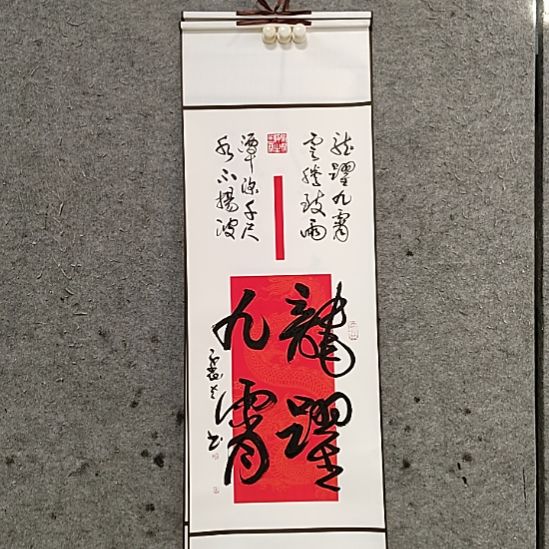 龙躍九霄
雲騰致雨
潭深千尺
水不揚波
龍躍
九霄